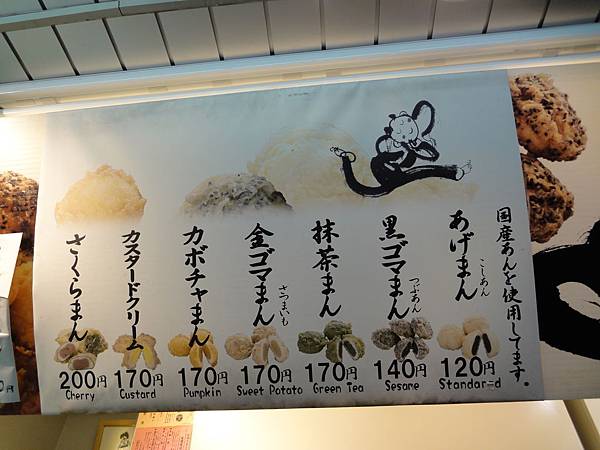 国産あんを使用してます。
あげまん
こしあん
120円
Standard
黒ゴマまん
つぶあん
140円
Sesame
抹茶まん
170円
Green Tea
金ゴマまん
さつまいも
170円
Sweet Potato
カボチャまん
170円
Pumpkin
カスタードクリーム
170円
Custard
さくらまん
200円
Cherry